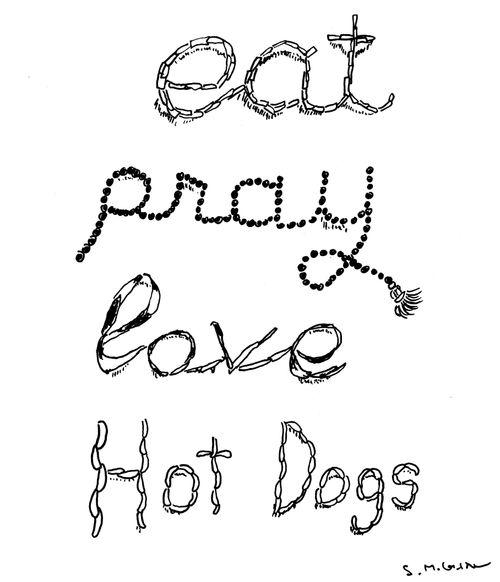 eat
pray
love
Hot Dogs